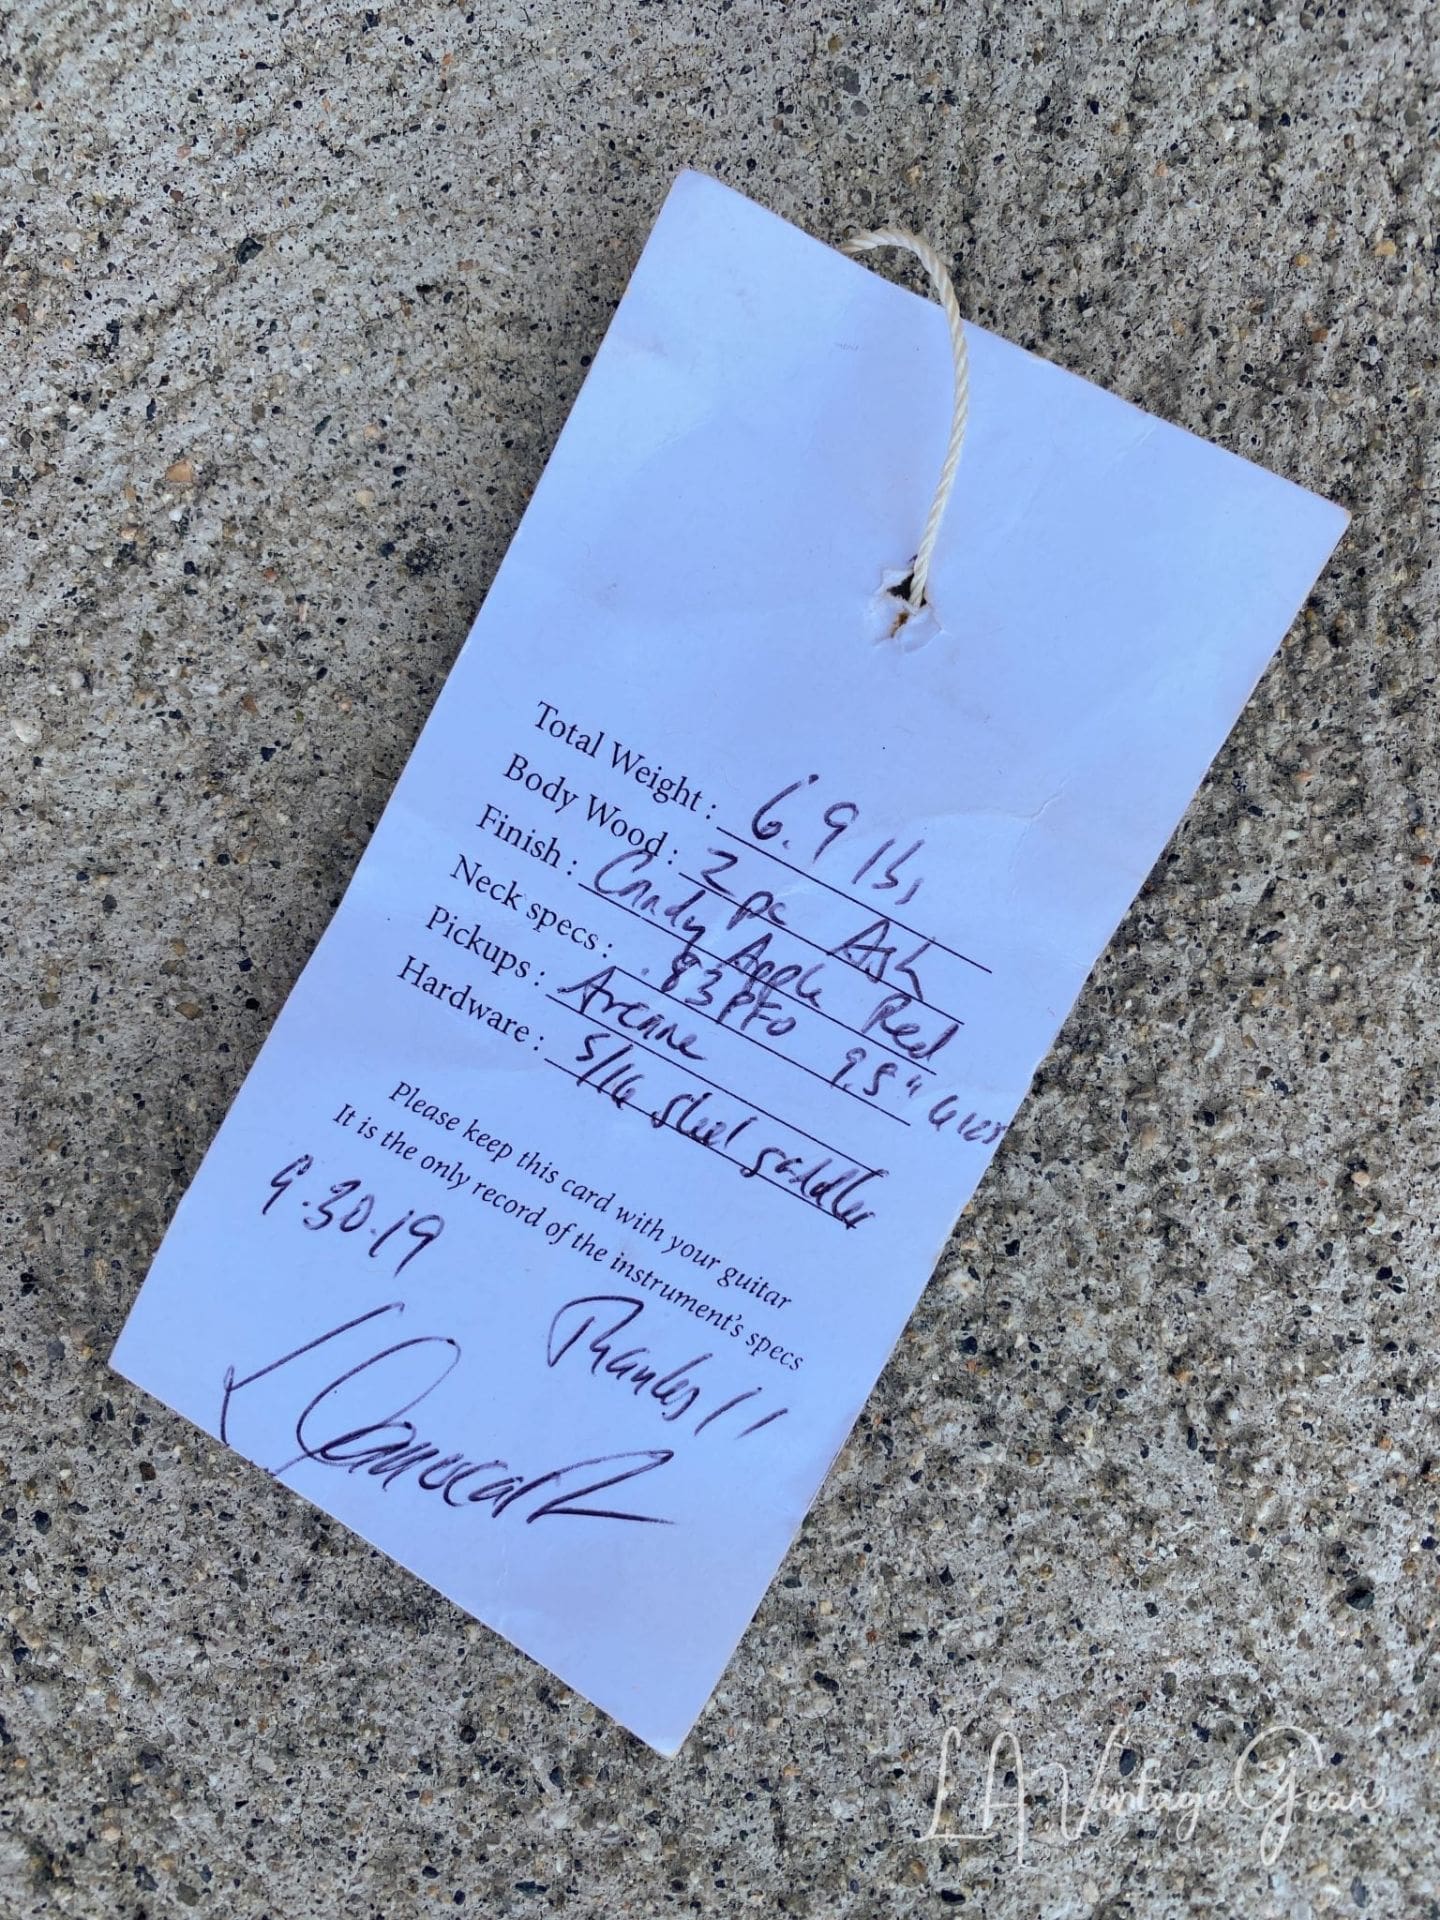 Total Weight : 6.9 lbs
Body Wood : 2 pc Ash
Finish : Candy Apple Red
Neck specs : .83 PFO 9.5" 6105
Pickups : Arcane
Hardware : 5/16 steel saddles
Please keep this card with your guitar
It is the only record of the instrument's specs
9.30.19
Thanks!!
LA Vintage Gear